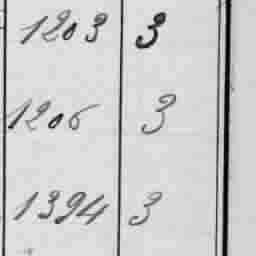 1203 3
1206 3
1394 3